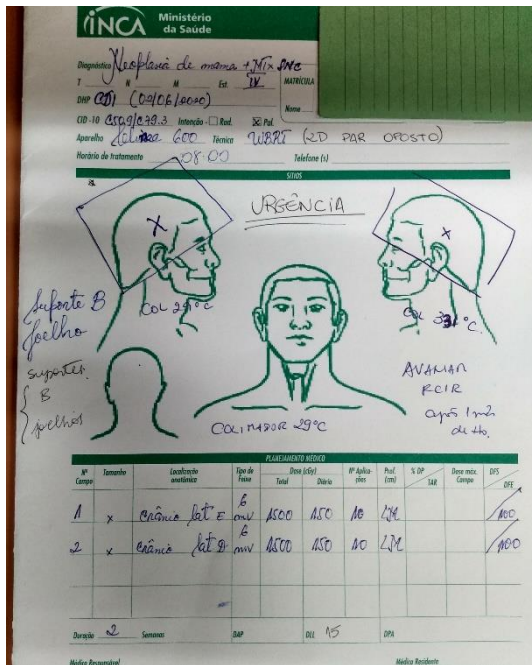 INCA Ministério
da Saúde
Diagnóstico Neoplasia de mama + MTx SNC
T N M Est. IV MATRÍCULA
DHP CDI (09/06/2020)
Nome
CID-10 C50.9/C79.3 Intenção - Rad. X Pal.
Aparelho 600 Técnica WBRT (2D PAR OPOSTO)
Horário de tratamento 08:00 Telefone (s)
SÍTIOS
URGÊNCIA
X
X
COL 29°C
COL 331°C
Suporte B
joelho
suporte
B
joelhos
AVALIAR
RCIR
após 1 mês
de tto.
COLIMADOR 29°C
PLANEJAMENTO MÉDICO
Nº Campo Tamanho Localização anatômica Tipo de Feixe Dose (cGy) Total Diário Nº Aplicações Prof. (cm) % DP TAR Dose máx. Campo DFS DFE
1 x Crânio lat E 6 mv 1500 150 10 LM /100
2 x Crânio lat D 6 mv 1500 150 10 LM /100
Duração 2 Semanas DAP DLL 15 DPA
Médico Responsável Médico Residente